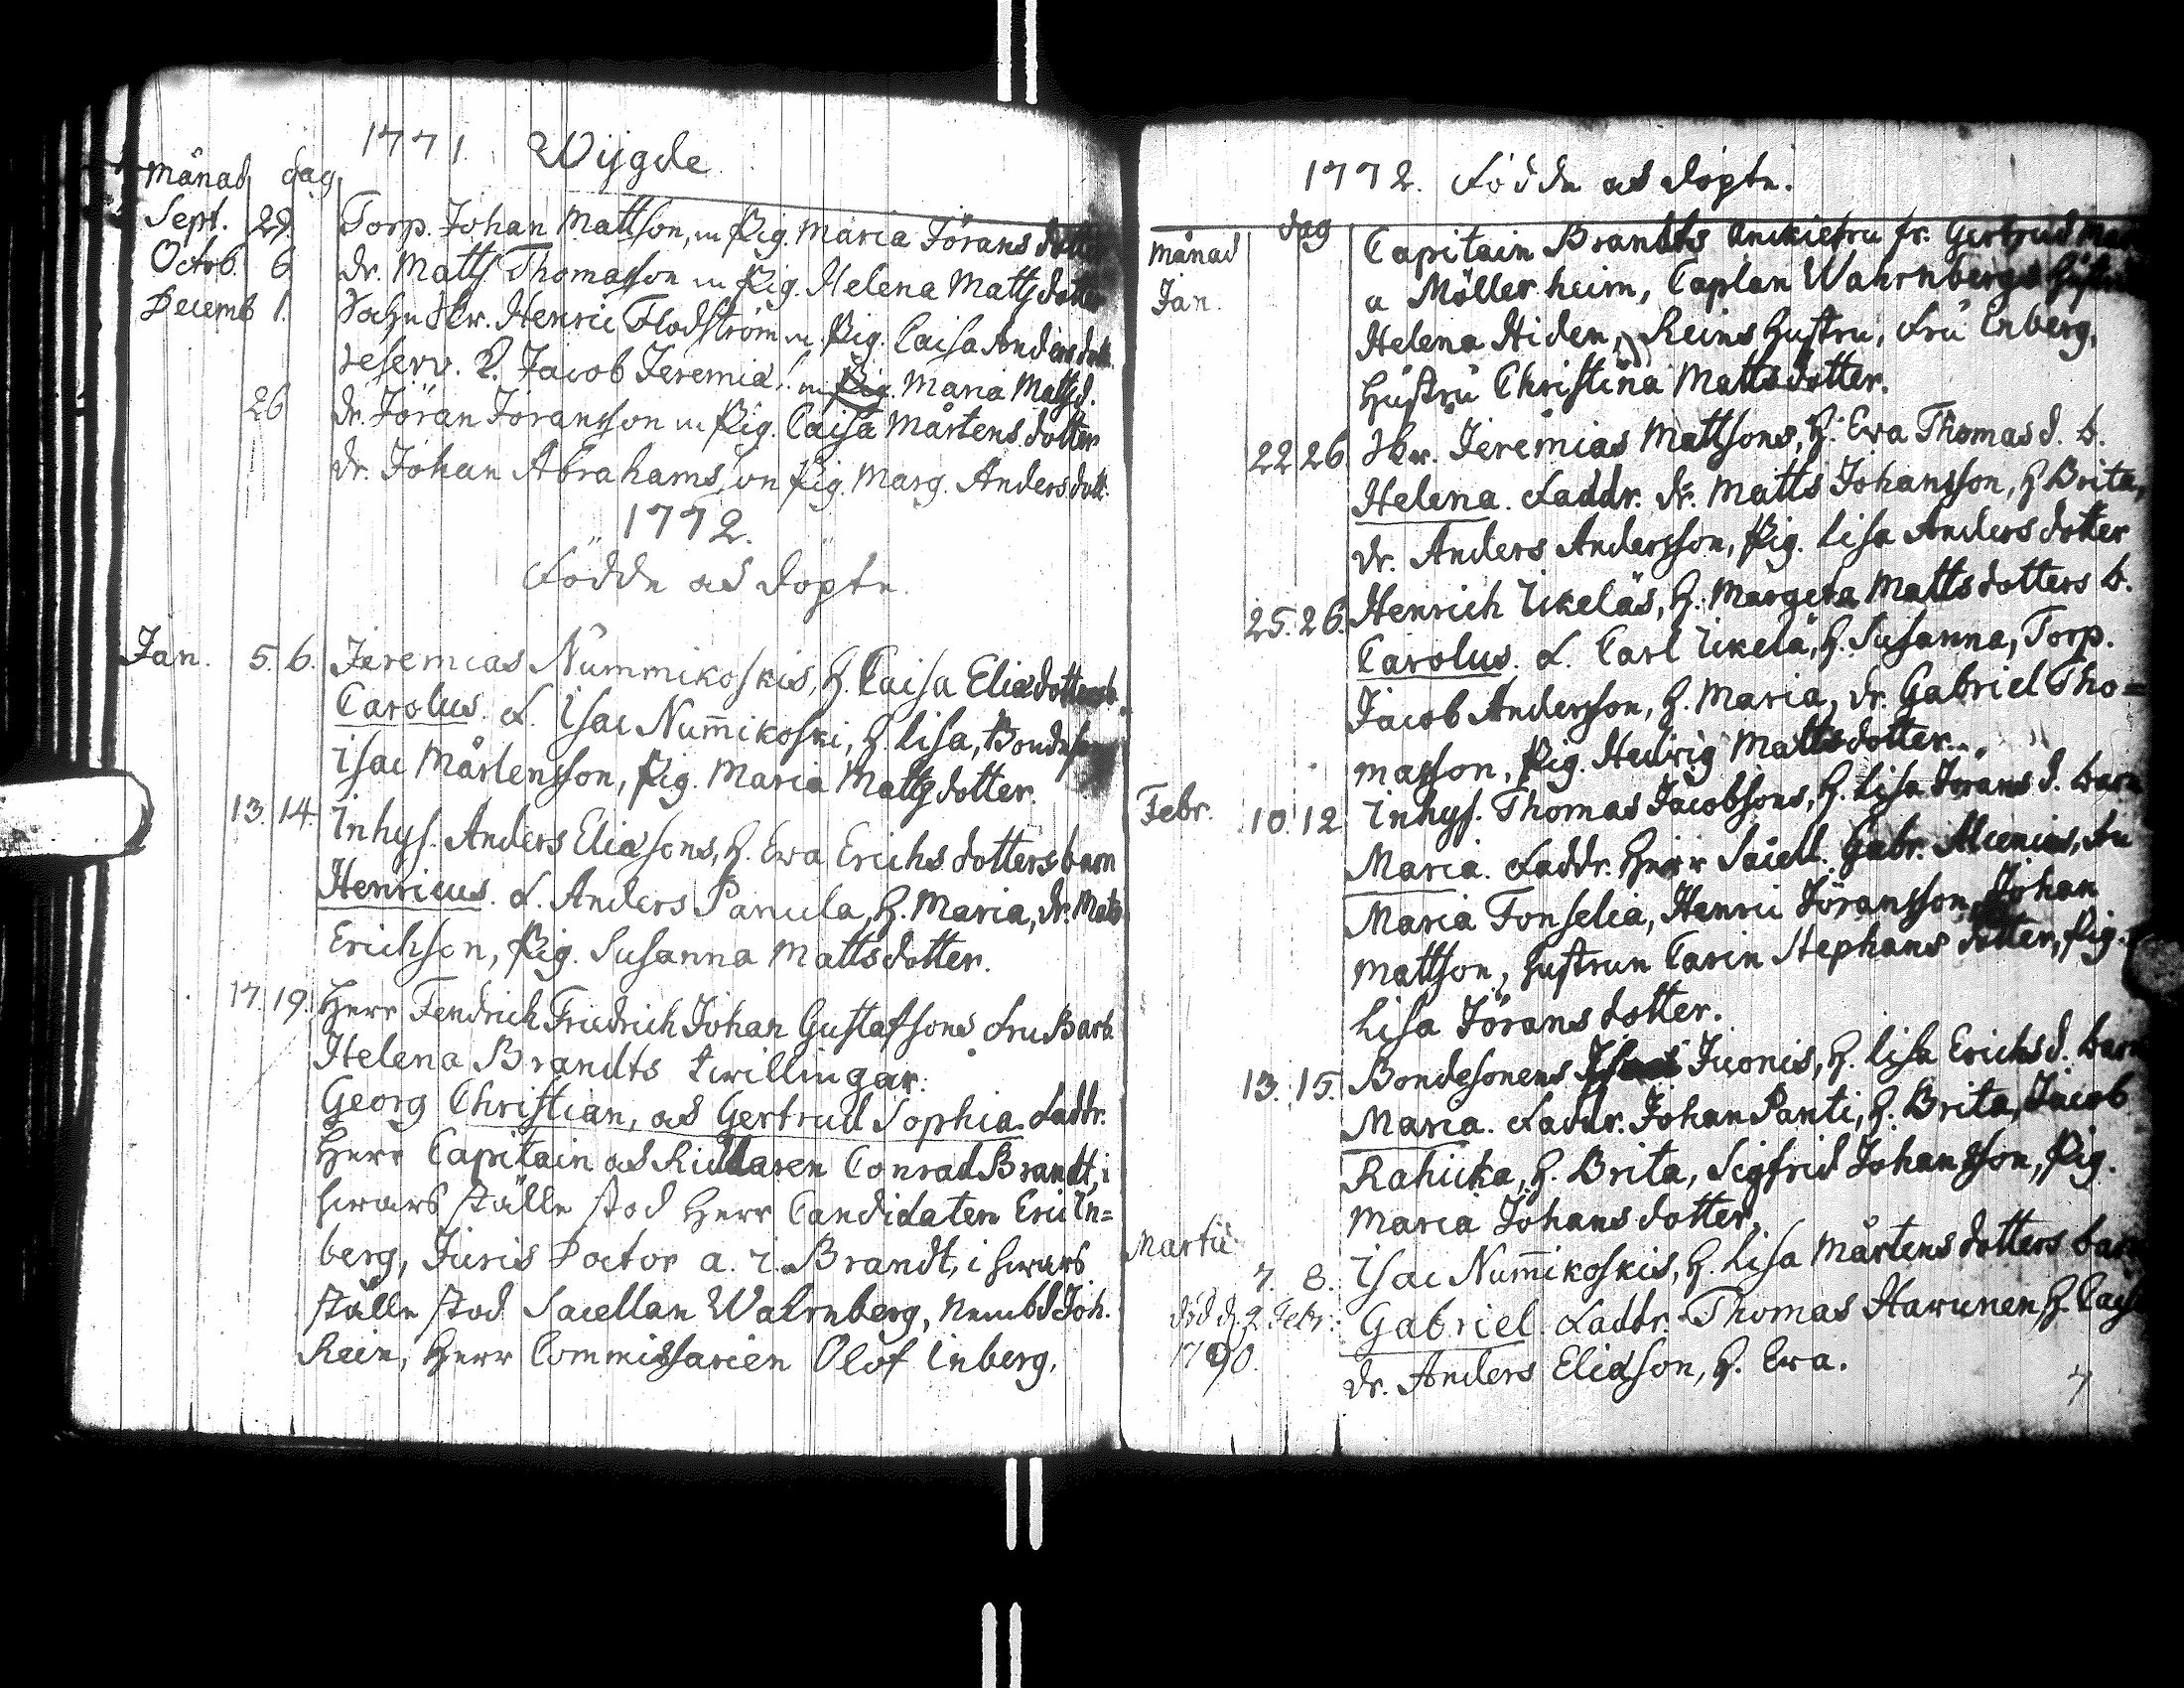 1771. Wijgde
Månad dag
Sept. 29. Torp. Johan Mattson, m Pig. Maria Jörans dotter
Octob. 6 dr. Matts Thomasson m Pig. Helena Mattsdotter
Decemb 1. Henric Flodström m. Pig. Caisa Anders dott
reserv. Jacob Jeremiæ m Pig. Maria Mattsd.
26 dr. Jöran Jöransson m Pig. Caisa Mårtens dotter
dr. Johan Abrahamsson Pig. Marg. Anders dott.
1772.
Födde ock döpte.
Jan. 5. 6. Jeremias Nummikoskis, H. Caisa Eliædotters b.
Carolus. F. Isac Num̄ikoski, H. Lisa, Bondes
Isac Mårtensson, Pig. Maria Mattsdotter.
13. 14. Inhys. Anders Eliæsons, H. Ewa Erichs dotters barn
Henricus. F. Anders Panula, H. Maria, dr. Mats
Erichson, Pig. Susanna Mattsdotter.
17. 19. Herr Fendrich Friedrich Johan Gustafsons Fru Barb.
Helena Brandts twillingar.
Georg Christian, ock Gertrud Sophia. Faddr.
Herr Capitain ock Riddaren Conrad Brandt, i
hwars ställe stod Herr Candidaten Eric En=
berg, Juris Doctor a. i. Brandt, i hwars
ställe stod Sacellan Wahrnberg, Nembd Joh.
Rein, Herr Commissarien Olof Enberg,
1772. Födde ock döpte.
månad dag
Capitain Brandts Enckiefru fr. Gertrud
Jan. a Möllerheim, Caplan Wahrnbergs Hustru
Helena Hiden, Reins Hustru, Fru Enberg,
Hustru Christina Mattsdotter.
22 26. Jeremias Mattsons, H. Ewa Thomas d. b.
Helena. Faddr. dr. Matts Johansson, H Brita,
dr. Anders Andersson, Pig. Lisa Anders dotter
25. 26. Henrich Ikeläs, H. Margeta Mattsdotters b.
Carolus. F. Carl Ikelä, H. Susanna, Torp.
Jacob Andersson, H. Maria, dr. Gabriel Tho=
masson, Pig. Hedvig Mattsdotter.
Febr. 10. 12 Inhys. Thomas Jacobsons, H. Lisa Jörans d. barn
Maria. Faddr. Herr Sacell. Gabr. Alcenius, Fru
Maria Fonselia, Henric Jöransson, Johan
Mattson, Hustrun Carin Stephans dotter, Pig.
Lisa Jörans dotter.
13. 15. Bondesonens Juonis, H. Lisa Erichs d. barn
Maria. Faddr. Johan Panti, H. Brita, Jacob
Rahicka, H. Brita, Sigfrid Johansson, Pig.
Maria Johans dotter,
Martii
7. 8. Isac Num̄ikoskis, H. Lisa Mårtens dotters barn
död d. 2 Febr: Gabriel. Faddr. Thomas Harunen, H. Caisa
1790. dr. Anders Eliæson, H. Ewa.
7